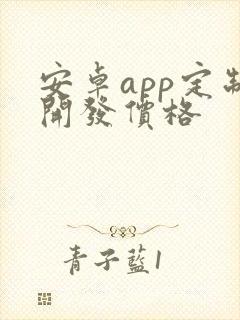 安卓app定制
開發價格
青子藍1